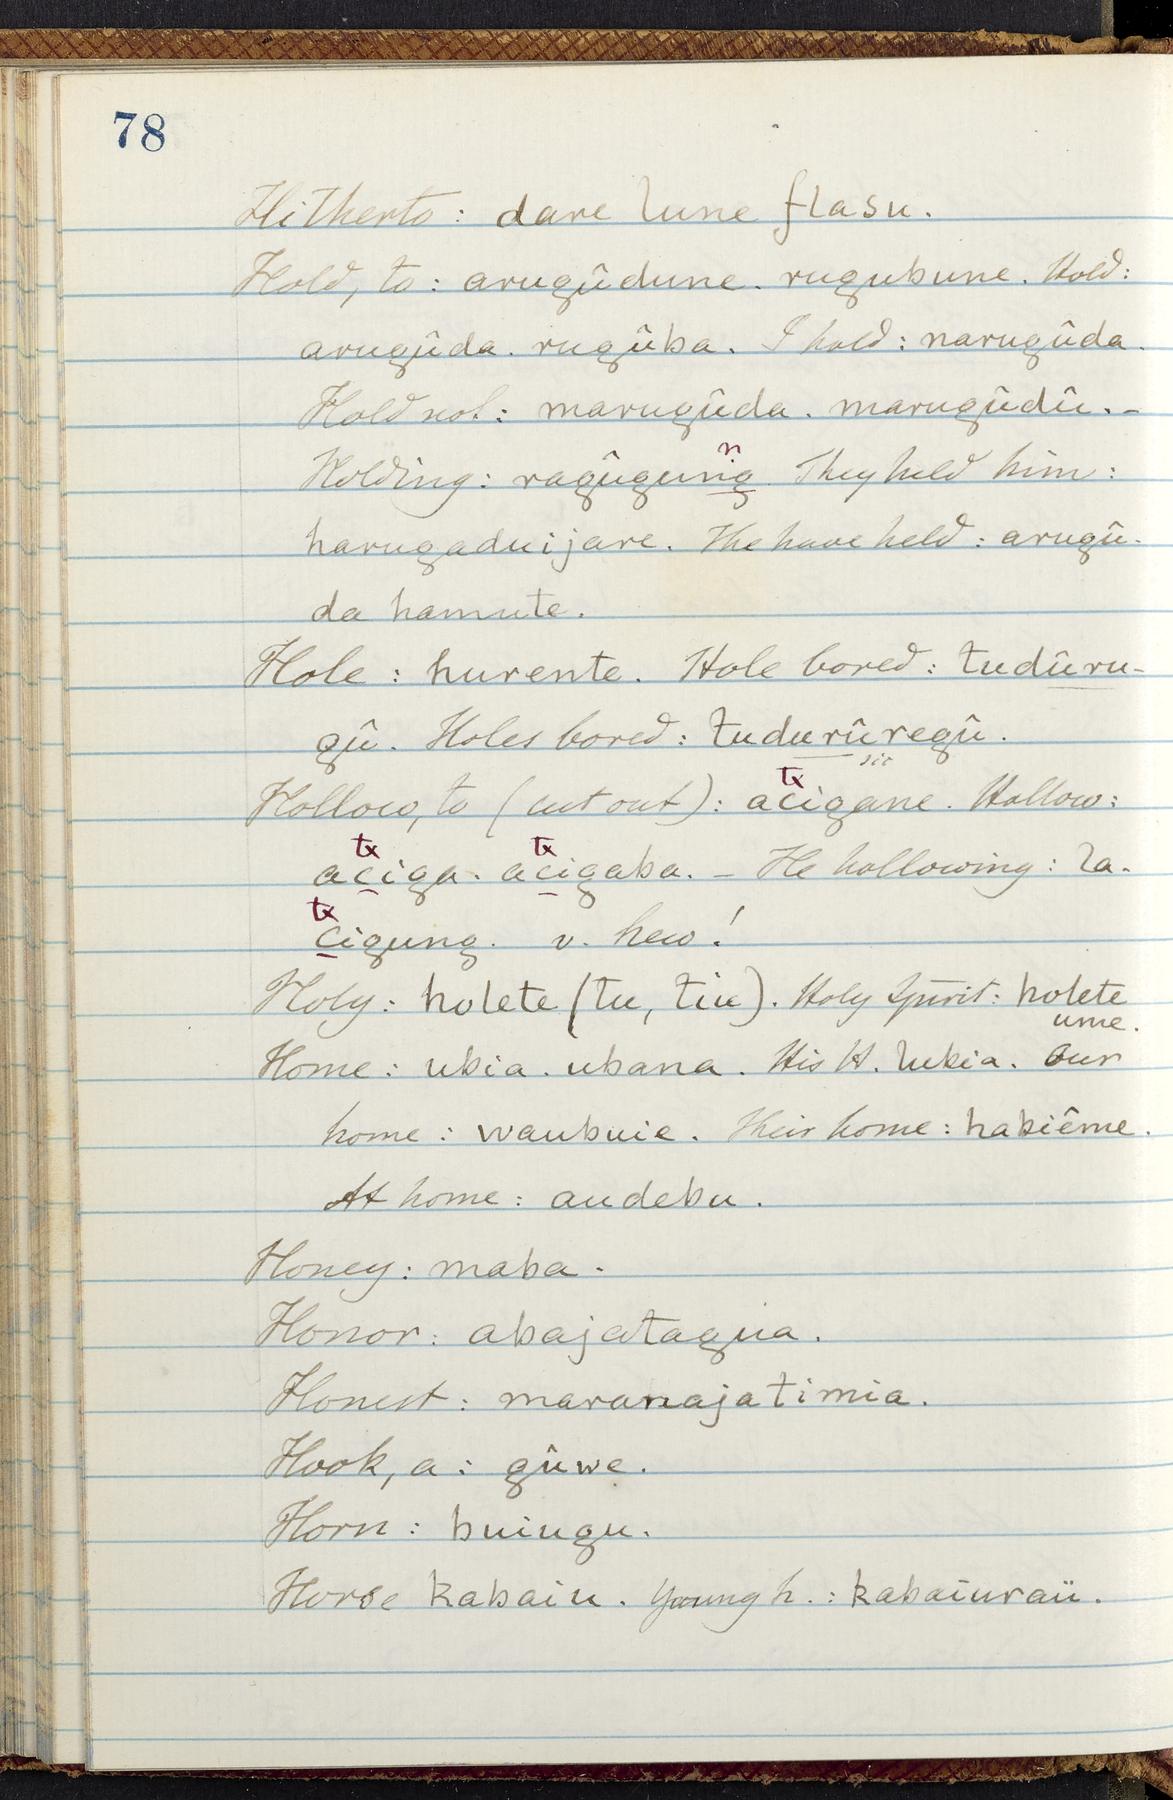 78
Hitherto: dare lune flasu.
Hold, to: arugûdune. rugubune. Hold:
arugûda. rugûba. I hold: narugûda.
Hold not: marugûda. marugûdû. -
n
Holding: ragûguñg They held him:
harugaduijare. The have held: arugû-
da hamute.
Hole: hurente. Hole bored: tudûru-
gû. Holes bored: tudurûregû.
sic
tx
Hollow, to (cut out): acigane. Hollow:
tx tx
aciga. acigaba. - He hollowing: la-
tx
cigung. v. hew!
Holy: holete (tu, tiu). Holy Spirit: holete
ume.
Home: ubia. ubana. His H. lubia. Our
home: waubuie. Their home: habiême.
At home: audebu.
Honey: maba.
Honor: abajatagua.
Honest: maranajatimia.
Hook, a: gûwe.
Horn: buiugu.
Horse kabaiu. Young h.: kabaiuraü.